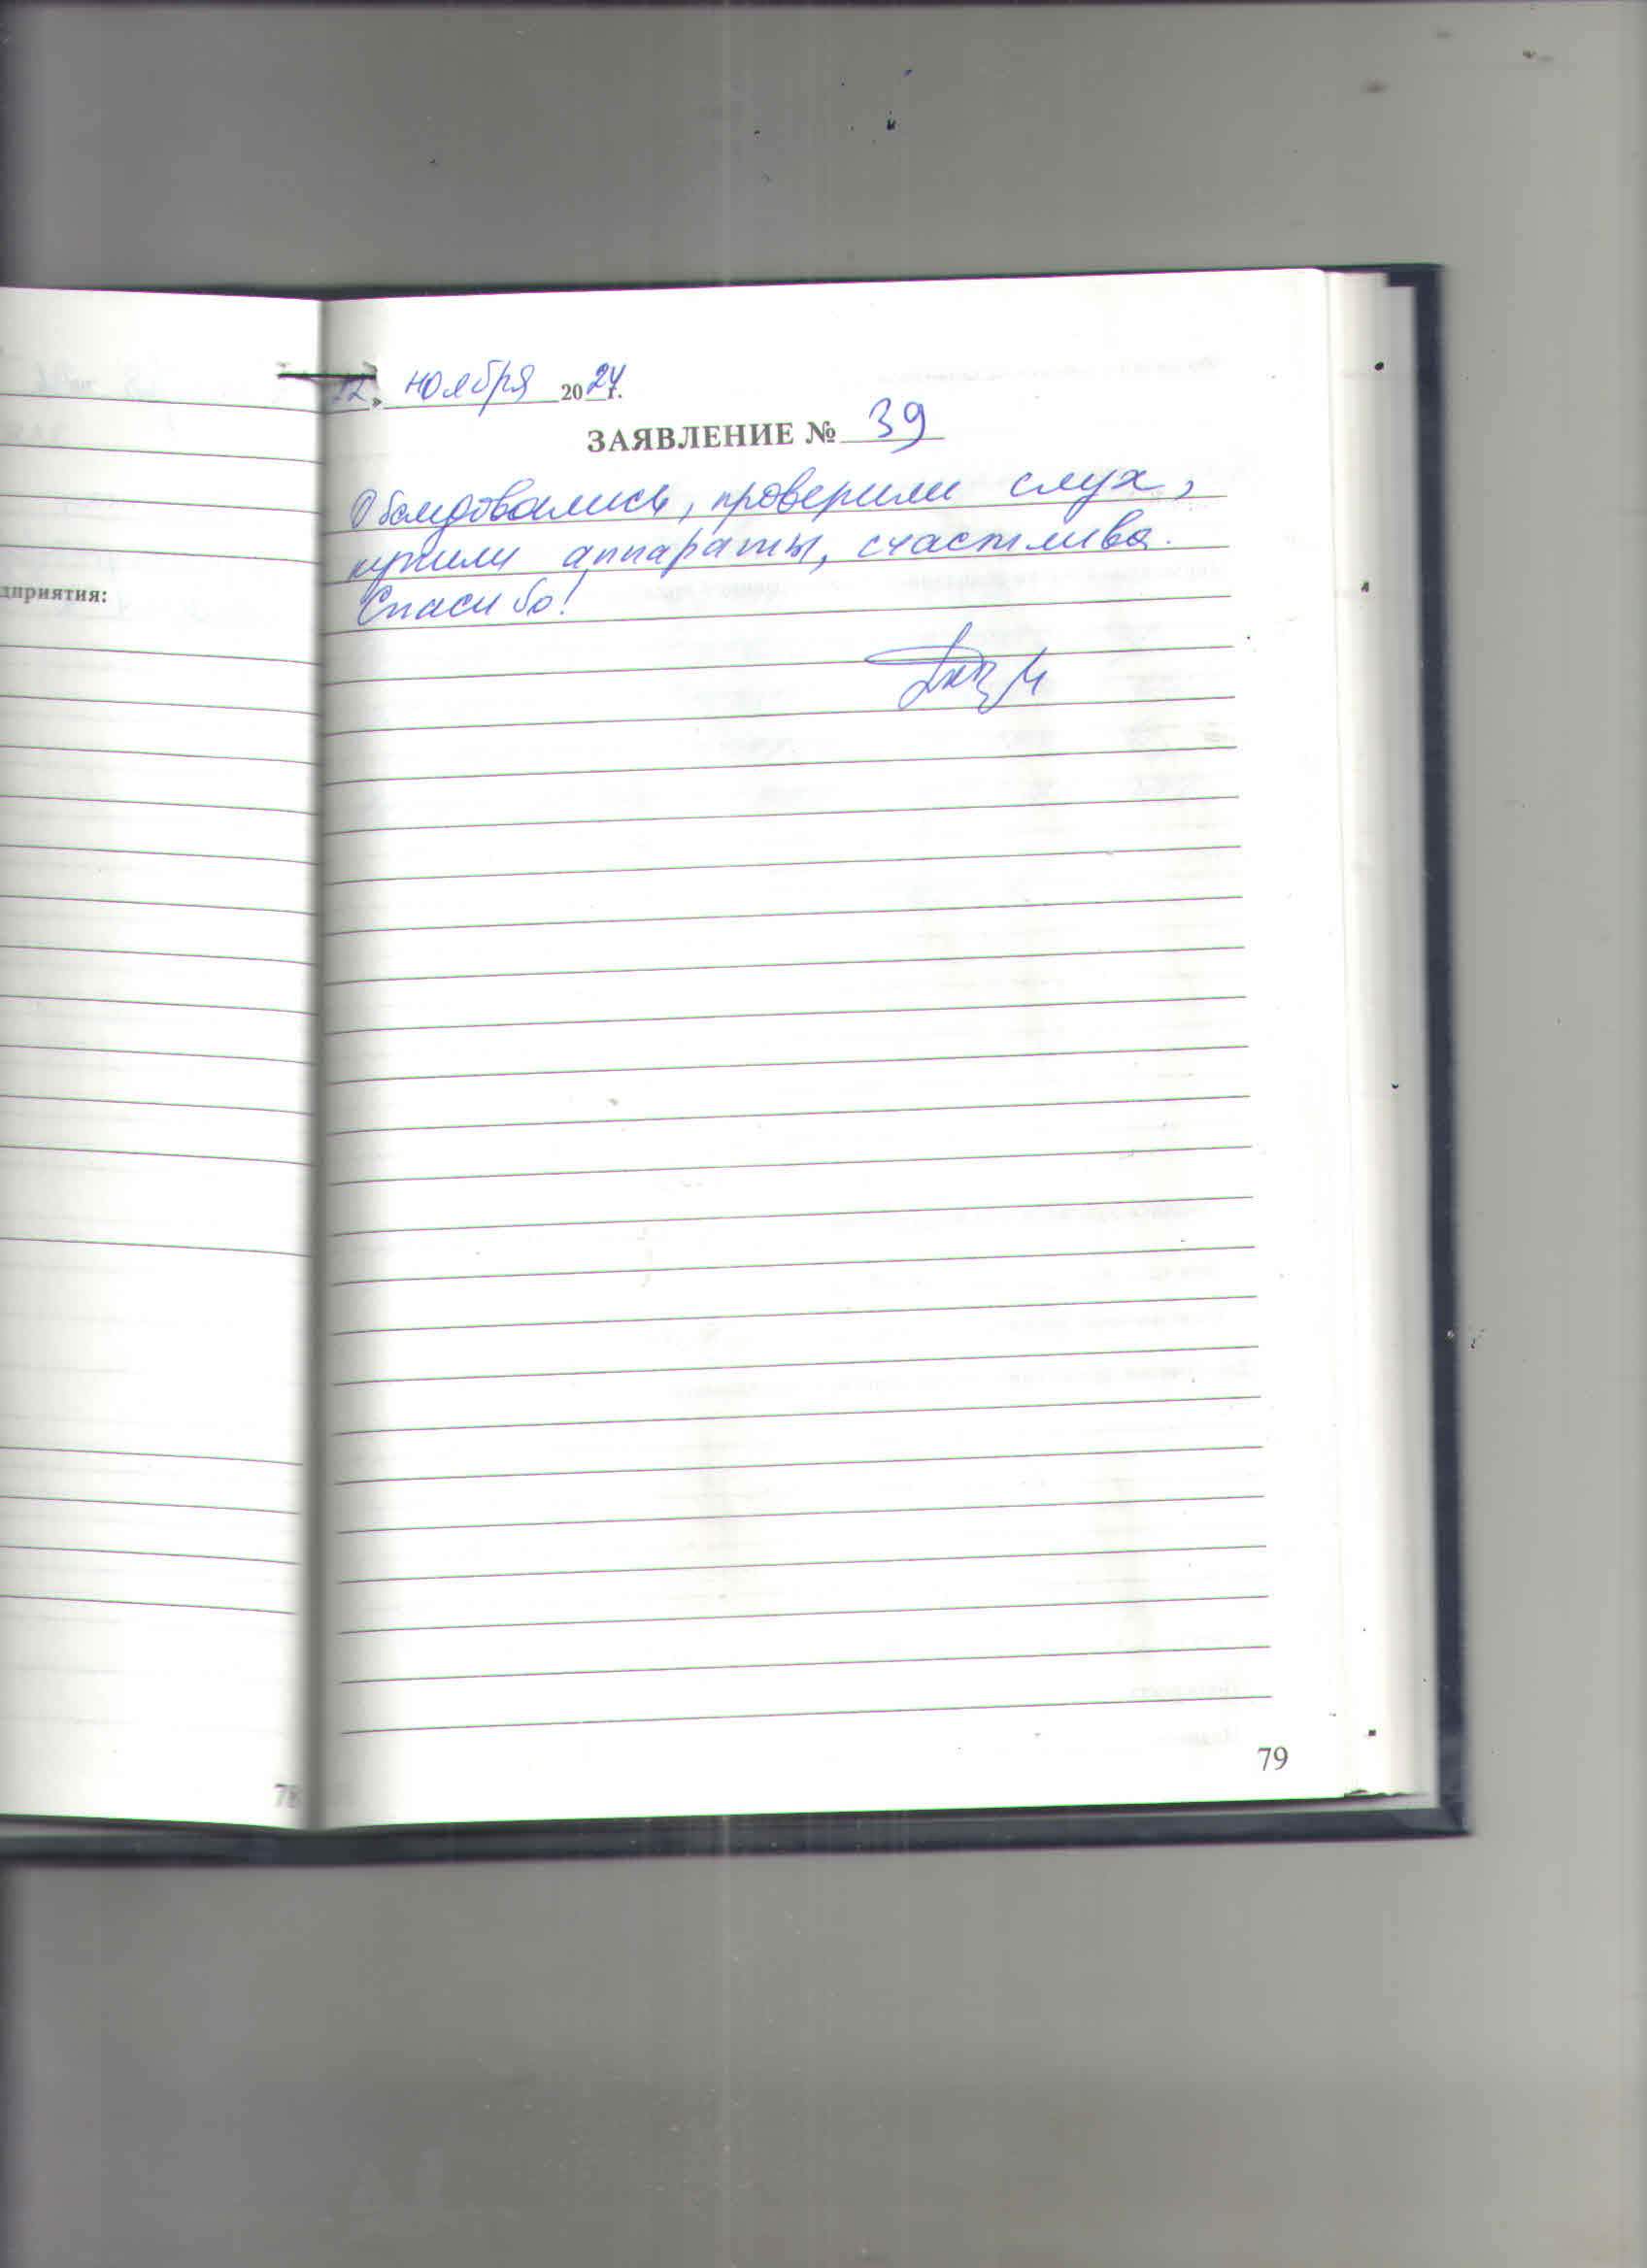 дприятия:
12» ноября 2024 г.
ЗАЯВЛЕНИЕ № 39
проверили слух,
купили аппараты, счастлива.
Спасибо!
79